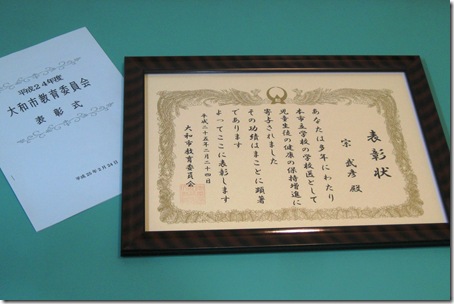 平成24年度
大和市教育委員会
表彰式
平成25年2月24日
表彰状
宗 武彦 殿
あなたは多年にわたり
本市立学校の学校医として
児童生徒の健康の保持増進に
寄与されました
その功績はまことに顕著
であります
よってここに表彰します
平成二十五年二月二十四日
大和市教育委員会